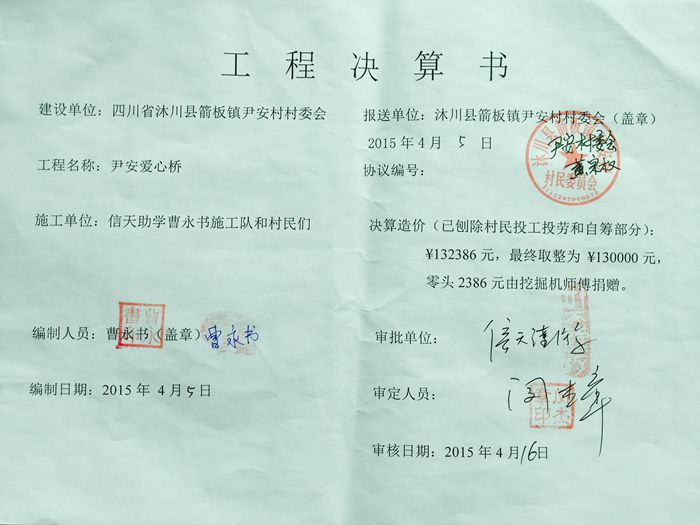 工程决算书
建设单位：四川省沐川县箭板镇尹安村村委会
报送单位：沐川县箭板镇尹安村村委会（盖章）
2015年4月5日
尹安村委会
黄宗权
村民委员会
工程名称：尹安爱心桥
协议编号：
施工单位：信天助学曹永书施工队和村民们
决算造价（已刨除村民投工投劳和自筹部分）：
¥132386元，最终取整为 ¥130000元，
零头2386元由挖掘机师傅捐赠。
编制人员：曹永书（盖章）曹永书
审批单位：
编制日期：2015年4月5日
审定人员：
审核日期：2015年4月16日